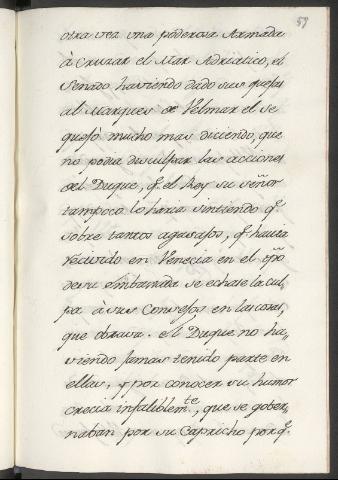 57
otra vez vna poderosa Armada
à cruzar el Mar Adriatico, el
Senado haviendo dado sus quejas
al Marques de Velmar el se
quejò mucho mas diciendo, que
no podia disculpar las acciones
del Duque, q.e el Rey su señor
tampoco lo haria sintiendo q.e
sobre tantos agasajos, q.e havia
recivido en Venecia en el tpõ
de su embaxada se echase la cul,,
pa à sus Consejos en las cosas,
que obrava. el Duque no ha,,
viendo Jamas tenido parte en
ellas, y por conocer su humor
crecia infaliblem.te, que se gober,,
naban por su Capricho porq.e